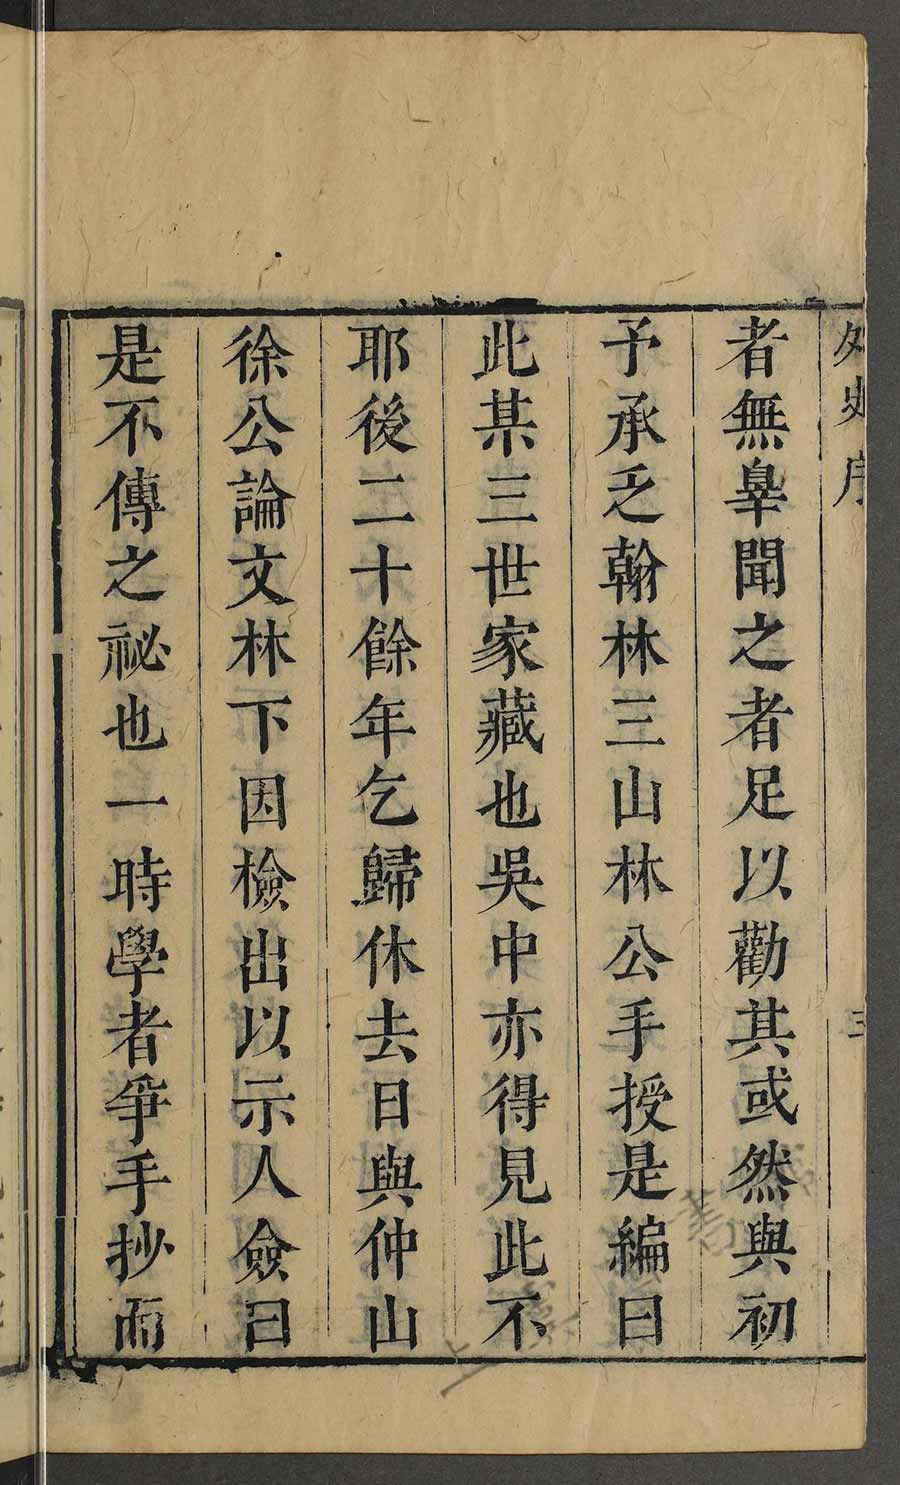 外史序
三
者無辠聞之者足以勸其或然與初
予承乏翰林三山林公手授是編曰
此某三世家藏也吳中亦得見此不
耶後二十餘年乞歸休去日與仲山
徐公論文林下因檢出以示人僉曰
是不傳之祕也一時學者爭手抄而